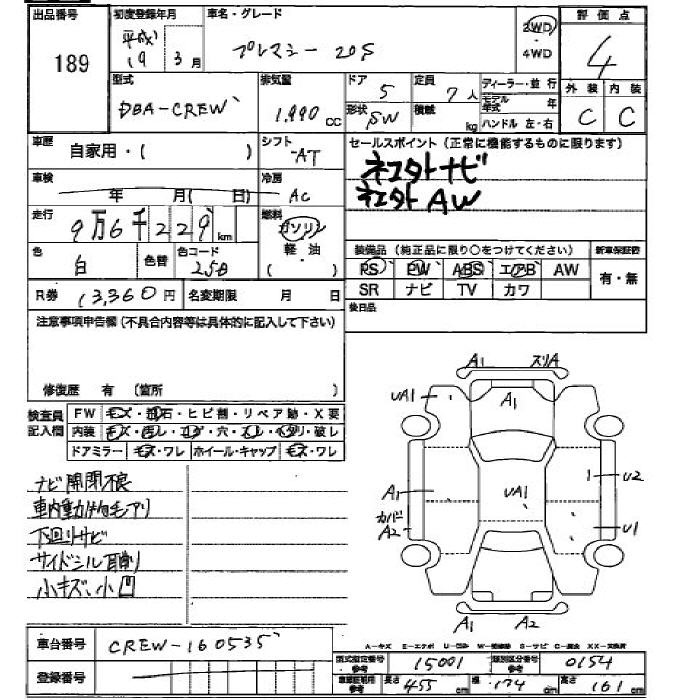 出品番号
189
初度登録年月
平成
19 3月
車名・グレード
プレマシー 20S
2WD
・
4WD
評価点
4
外装 内装
C C
型式
DBA-CREW
排気量
1,990 cc
ドア 5
形状 SW
定員 7人
積載 kg
ディーラー・並 行
モデル年式 年
ハンドル 左・右
車歴
自家用・( )
シフト
AT
セールスポイント (正常に機能するものに限ります)
ネエタトナビ
ネエタト AW
車検
年 月( 日)
冷房
AC
走行
9万6千229 km
燃料
ガソリン
軽・油
( )
色
白
色替
色コード
25D
装備品 (純正品に限り○をつけてください)
新車保証書
PS PW ABS エアB AW
SR ナビ TV カワ
有・無
R券 13,360円 名変期限 月 日
後日品
注意事項申告欄 (不具合内容等は具体的に記入して下さい)
修復歴 有 (箇所 )
検査員記入欄
FW キズ・飛石・ヒビ割・リペア跡・X要
内装 キズ・汚レ・コゲ・穴・スレ・ヘタリ・破レ
ドアミラー キズ・ワレ ホイール・キャップ キズ・ワレ
ナビ開閉不良
車内動物毛アリ
下回りサビ
サイドシル耳削
小キズ、小凹
A1 スリA
UA1 A1
A1 UA1 U2
カバド
A2 U1
A1 A2
車台番号
CREW-160535
登録番号
A-キズ E-エクボ U-凹ミ W-補修跡 S-サビ C-腐食 XX-交換済
型式指定番号 参考 15001
類別区分番号 参考 0154
車検証明用 参考
長さ 455 cm
幅 174 cm
高さ 161 cm